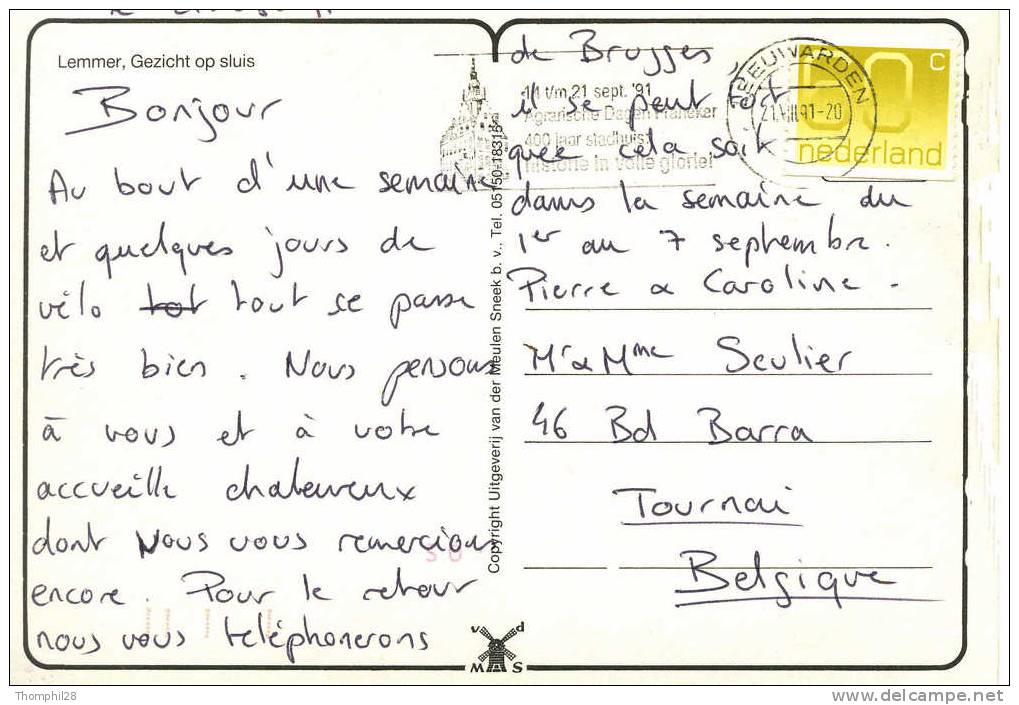 Lemmer, Gezicht op sluis
Bonjour
Au bout d'une semaine
et quelques jours de
vélo tot tout se passe
très bien. Nous pensons
à vous et à votre
accueille chaleureux
dont Nous vous remercions
encore. Pour le retour
nous vous telephonerons
de Brugges
il se peut fort
quee cela soit
dans la semaine du
1er au 7 septembre.
Pierre & Caroline -
Mr & Mme Seulier
46 Bd Barra
Tournai
Belgique
11 t/m 21 sept. '91
Agrarische Dagen Franeker
400 jaar stadhuis:
historie in volle glorie!
LEEUWARDEN
21.VIII.91-20
60 c
nederland
Copyright Uitgeverij van der Meulen Sneek b.v., Tel. 05150-18315
v d
M S
Thomphil28
www.delcampe.net